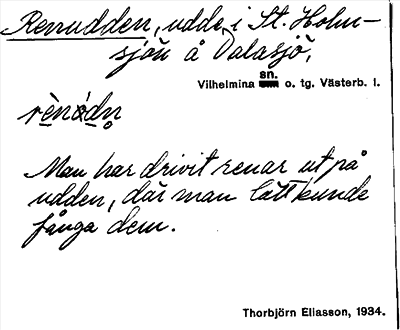 Renudden, udde, i St. Holm-
sjön å Dalasjö,
Vilhelmina sn. o. tg. Västerb. l.
rènòdn̥
Man har drivit renar ut på
udden, där man lätt kunde
fånga dem.
Thorbjörn Eliasson, 1934.